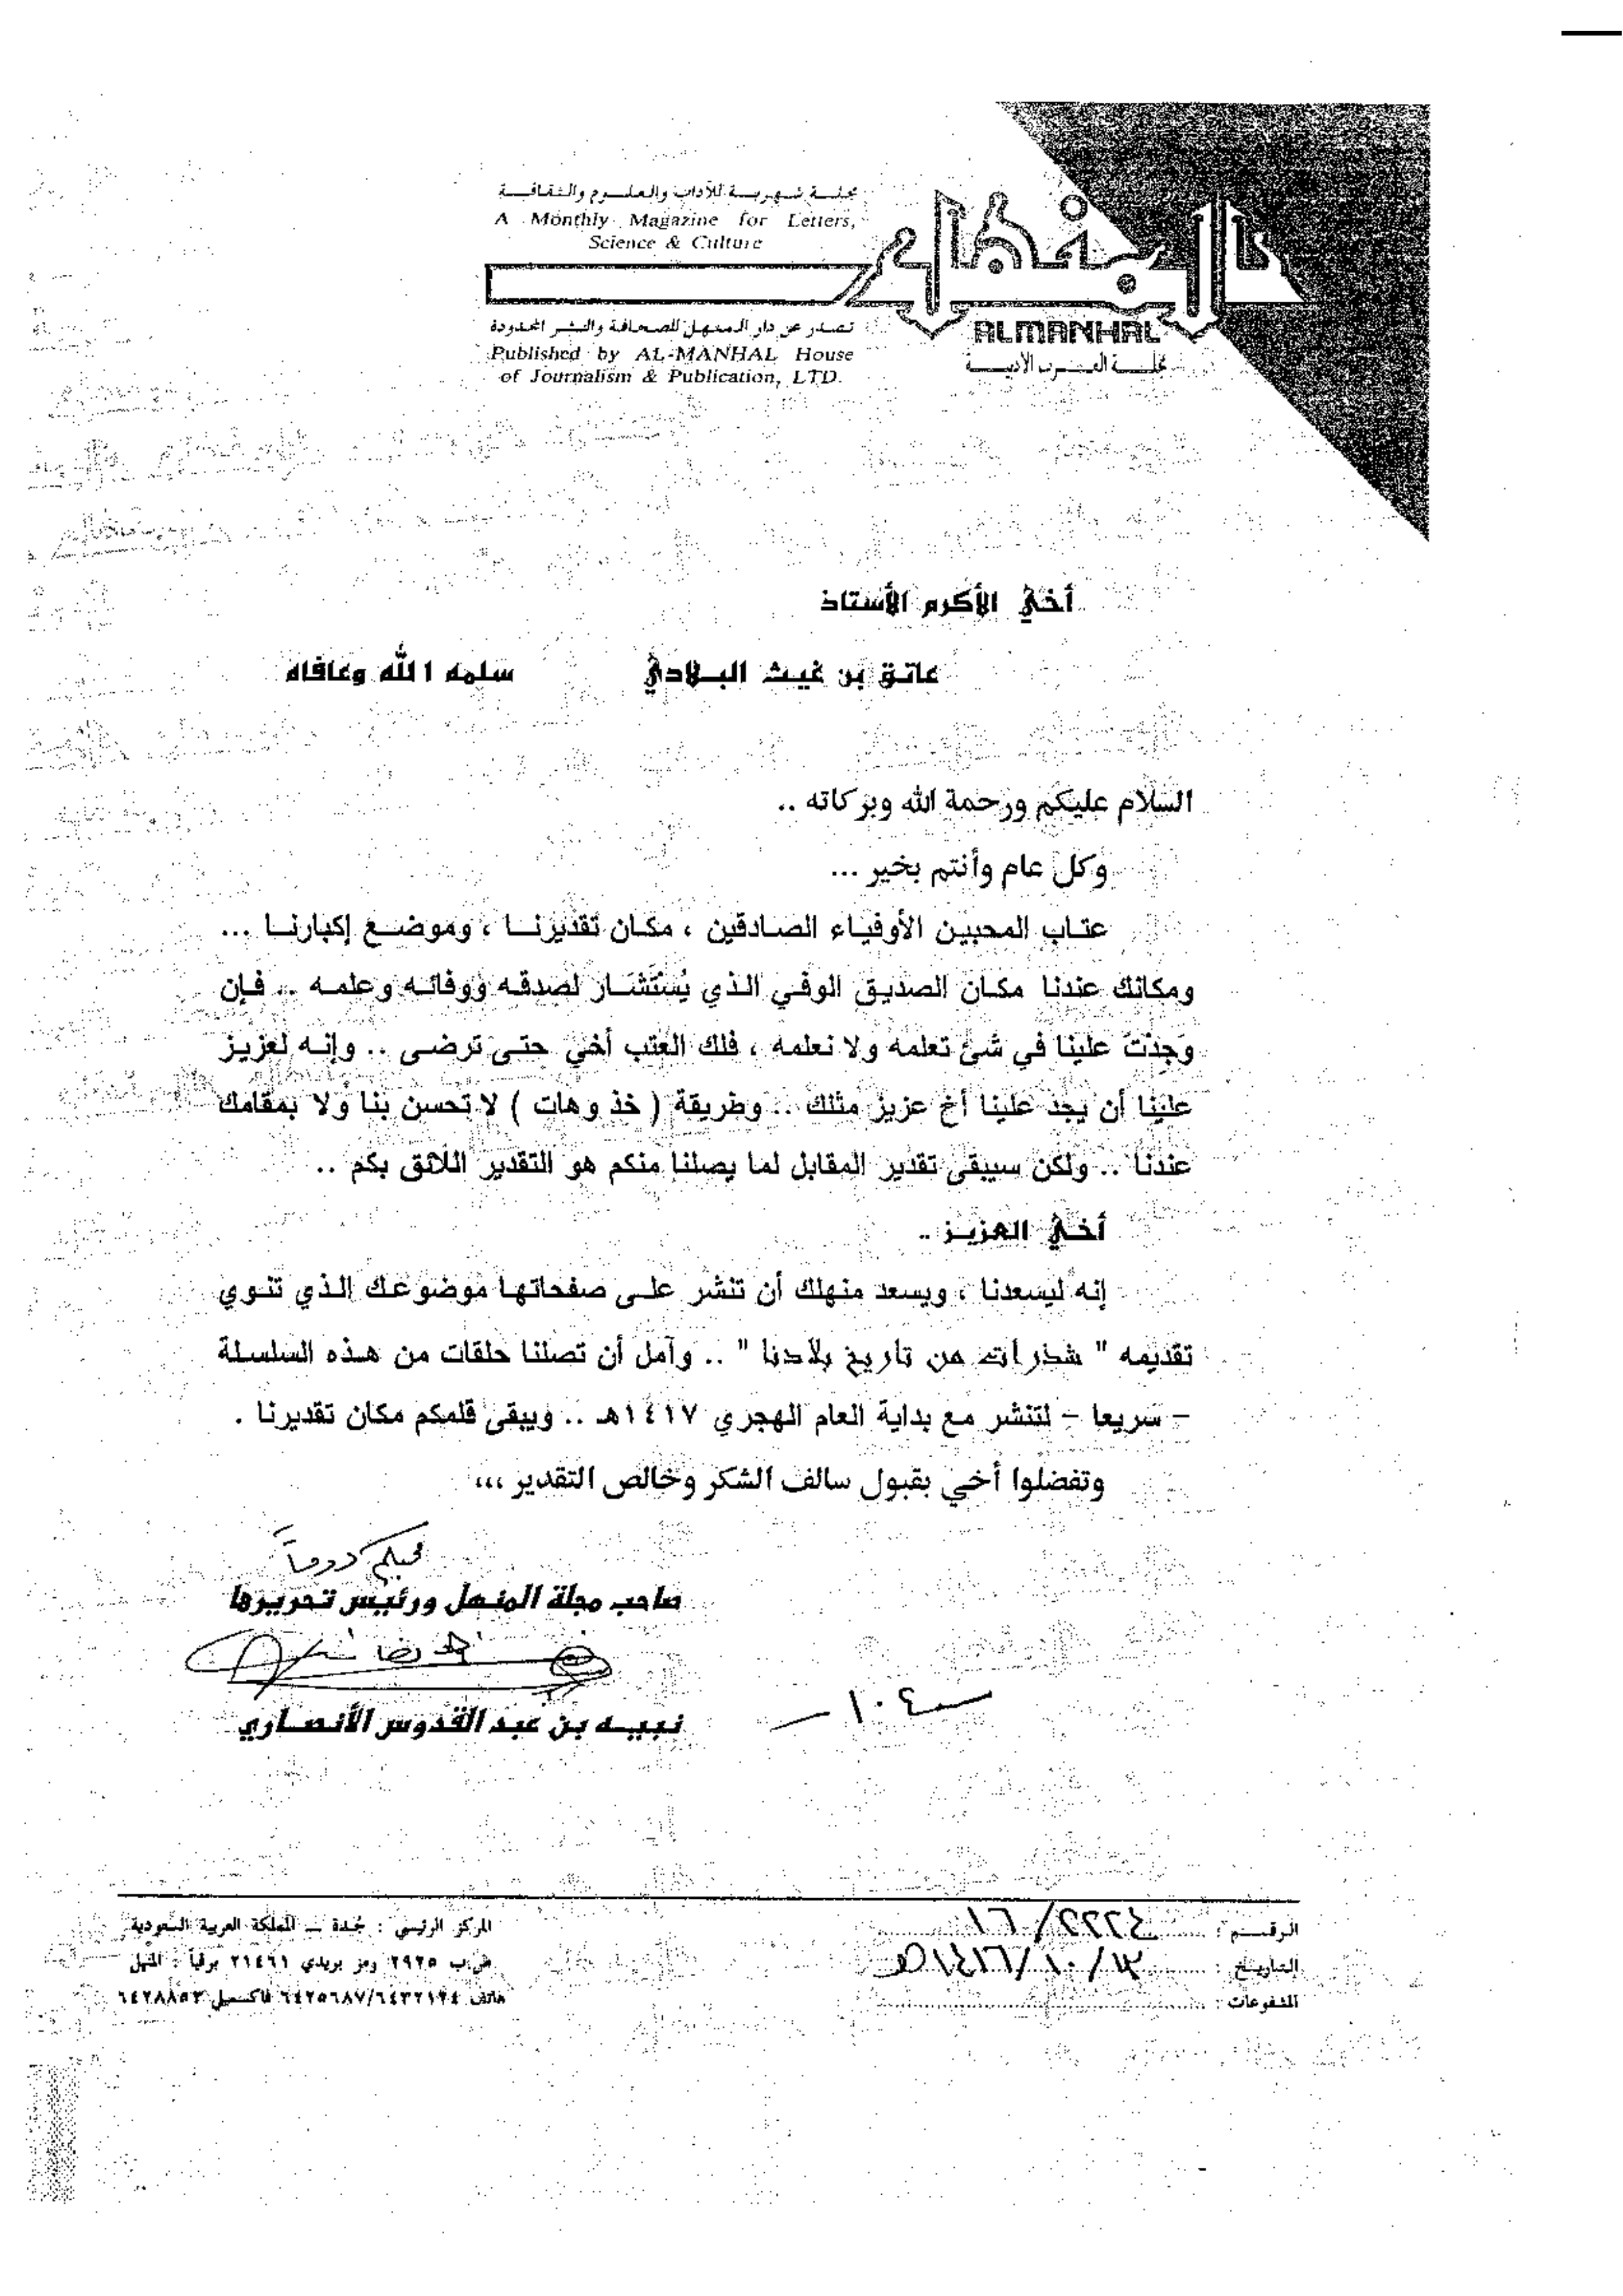 مجلة شهرية للآداب والعلوم والثقافة
A Monthly Magazine for Letters,
Science & Culture
المنهل
تصدر عن دار المنهل للصحافة والنشر المحدودة
ALMANHAL
Published by AL-MANHAL House
of Journalism & Publication, LTD.
مجلة العرب الأدبية
أخي الأكرم الأستاذ
عاتق بن غيث البلادي سلمه الله وعافاه
السلام عليكم ورحمة الله وبركاته ..
وكل عام وأنتم بخير ...
عتاب المحبين الأوفياء الصادقين ، مكان تقديرنا ، وموضع إكبارنا ...
ومكانك عندنا مكان الصديق الوفي الذي يُسْتَشَار لصدقه ووفائه وعلمه .. فإن
وَجِدْتَ علينا في شئ تعلمه ولا نعلمه ، فلك العتب أخي حتى ترضى .. وإنه لعزيز
علينا أن يجد علينا أخ عزيز مثلك .. وطريقة ( خذ وهات ) لا تحسن بنا ولا بمقامك
عندنا .. ولكن سيبقى تقدير المقابل لما يصلنا منكم هو التقدير اللائق بكم ..
أخي العزيز ..
إنه ليسعدنا ، ويسعد منهلك أن تنشر على صفحاتها موضوعك الذي تنوي
تقديمه " شذرات من تاريخ بلادنا " .. وآمل أن تصلنا حلقات من هذه السلسلة
– سريعا – لتنشر مع بداية العام الهجري ١٤١٧هـ .. ويبقى قلمكم مكان تقديرنا .
وتفضلوا أخي بقبول سالف الشكر وخالص التقدير ،،،
محبكم دوماً
صاحب مجلة المنهل ورئيس تحريرها
نبيه بن عبد القدوس الأنصاري
– ١٠٤ –
الرقم :
التاريخ : ١٣/١٠/١٤١٦هـ
المشفوعات :
المركز الرئيسي : جدة – المملكة العربية السعودية
ص.ب ٢٩٢٥ رمز بريدي ٢١٤٦١ برقياً : المنهل
هاتف ٦٤٣٢١٢٤/٦٤٢٥٦٨٧ فاكسميل ٦٤٢٨٨٥٣